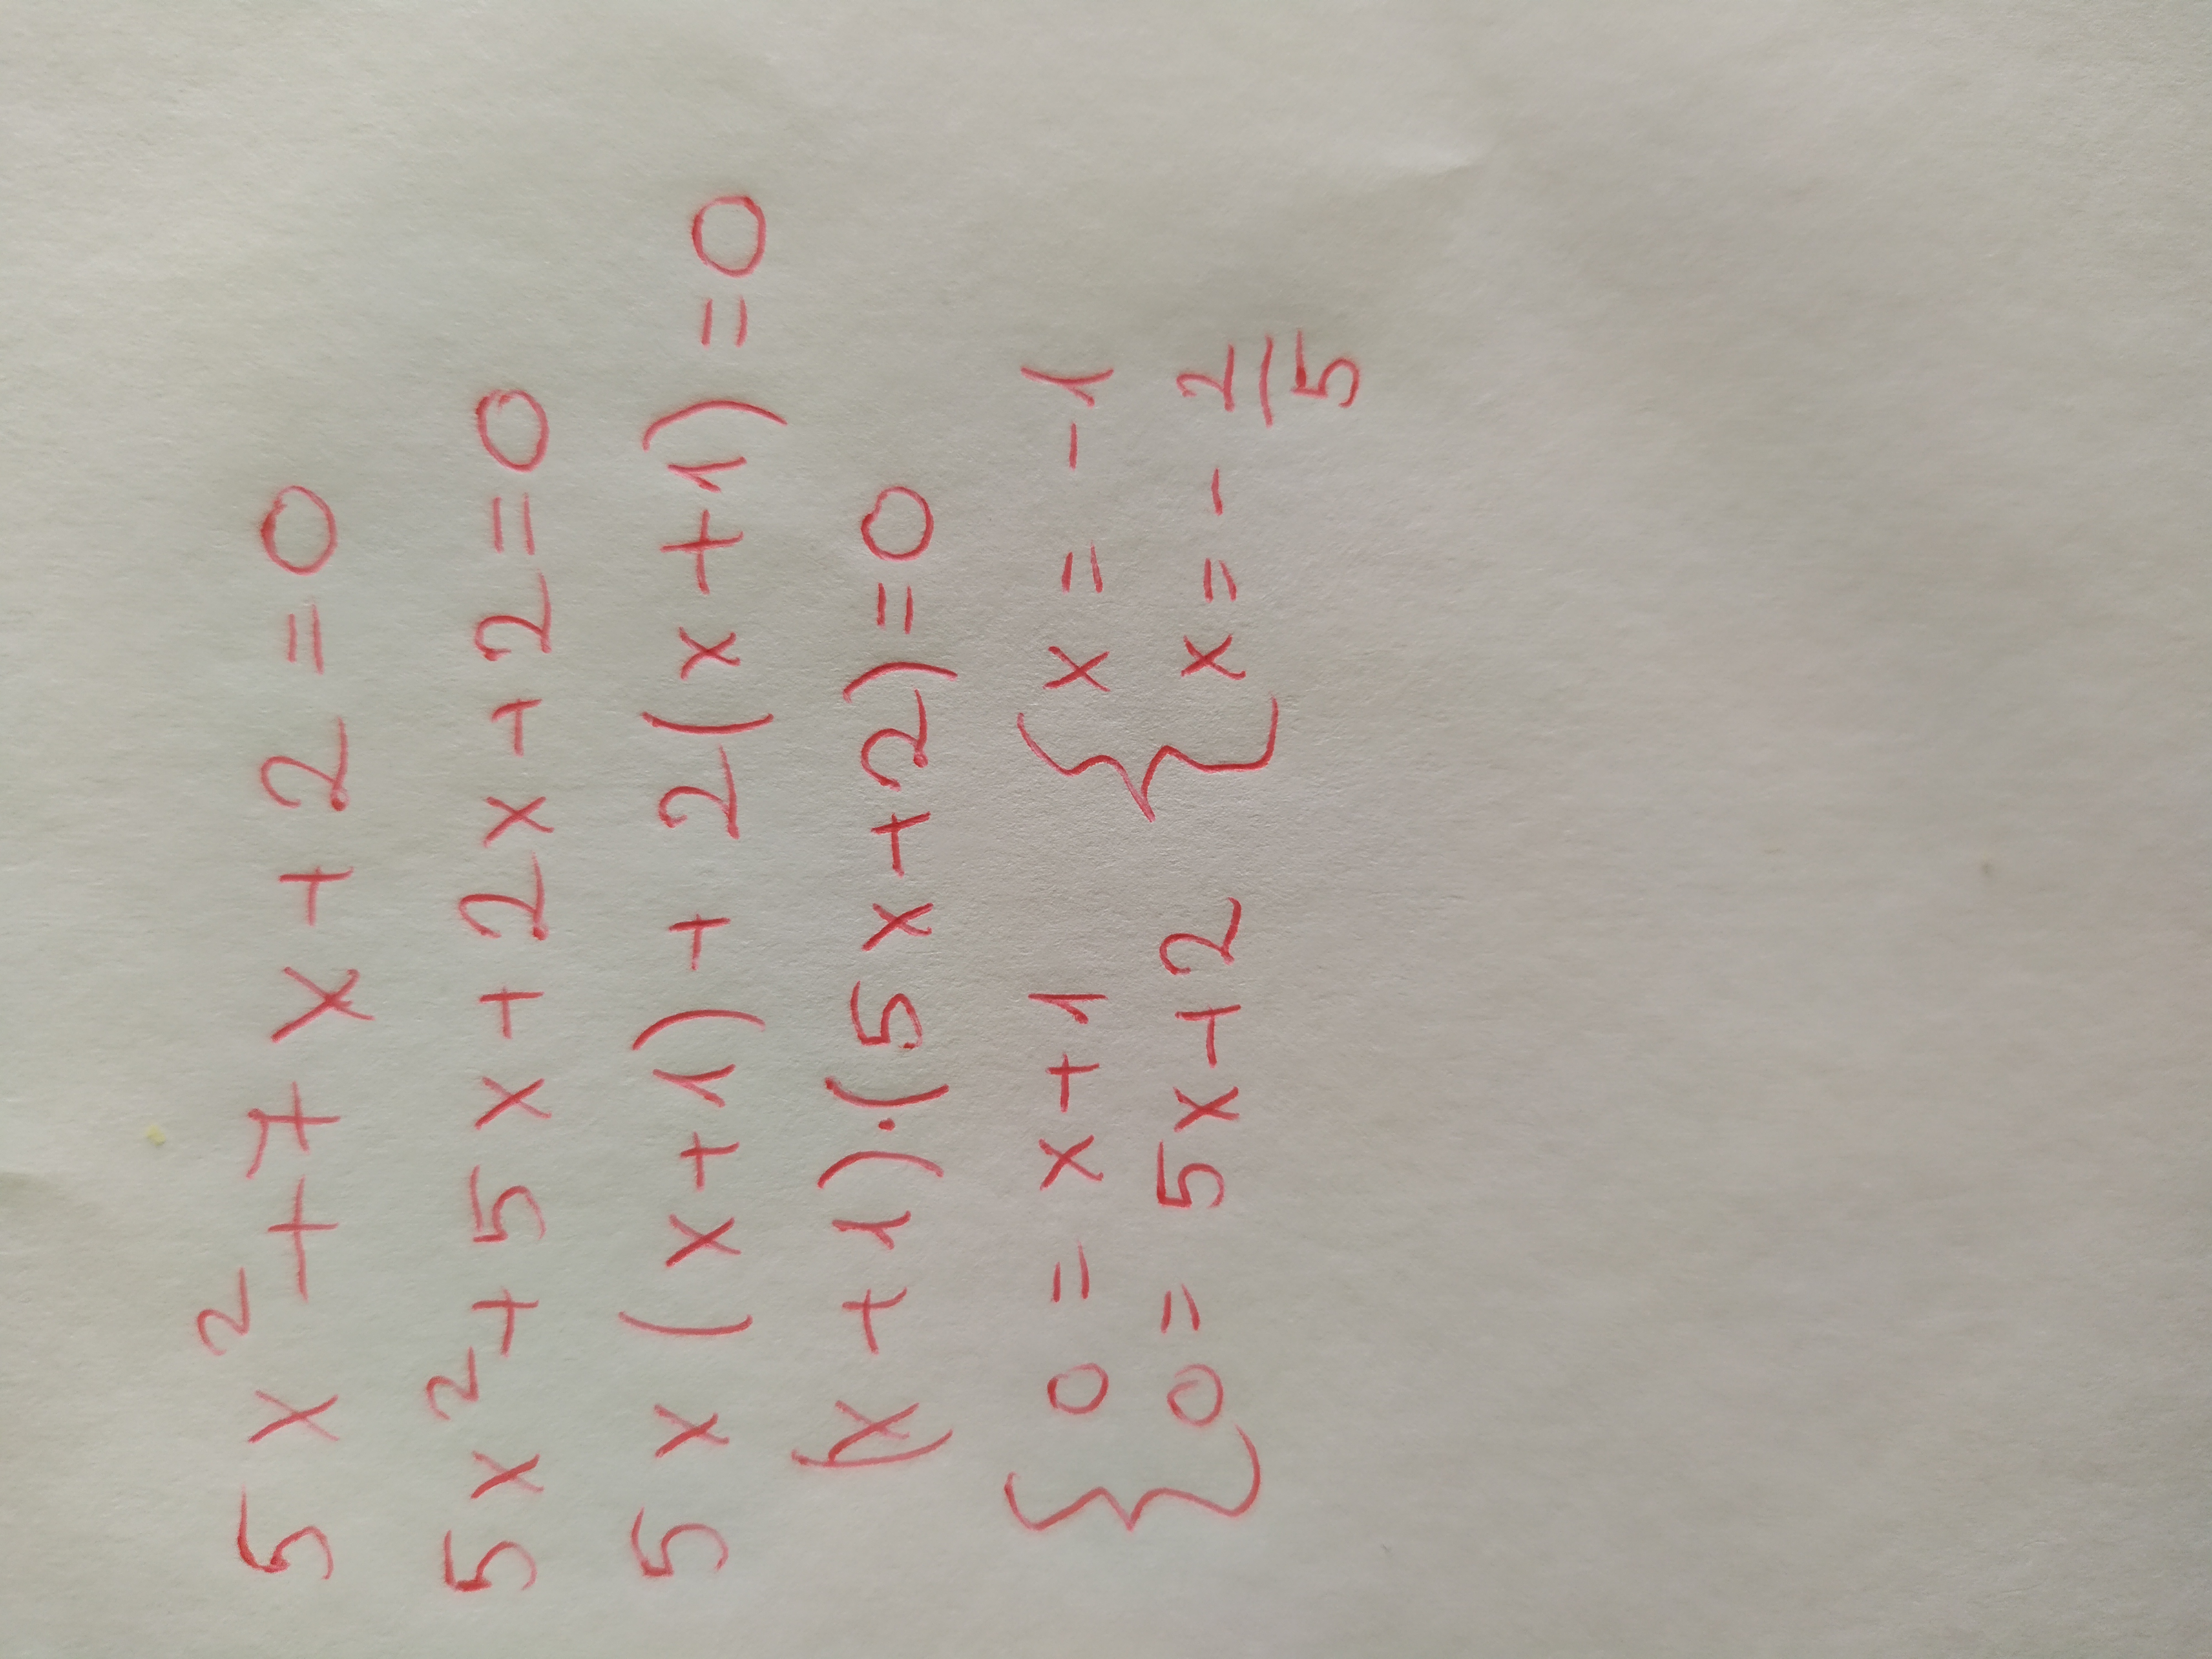 5x²+7x+2=0
5x²+5x+2x+2=0
5x(x+1)+2(x+1)=0
(x+1)·(5x+2)=0
{ 0=x+1 { x=-1
0=5x+2 x=-2/5